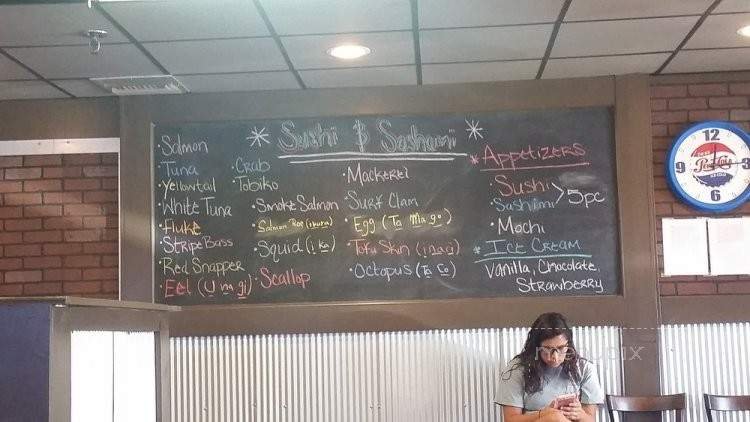 Sushi & Sashami
Salmon
Tuna
Yellowtail
White Tuna
Fluke
Stripe Bass
Red Snapper
Eel (U na gi)
Crab
Tobiko
Smoke Salmon
Salmon Roe (ikura)
Squid (i ka)
Scallop
Mackerel
Surf Clam
Egg (Ta Ma go)
Tofu Skin (inari)
Octopus (Ta Co)
* Appetizers
Sushi
Sashimi > 5pc
Mochi
* Ice Cream
Vanilla, Chocolate,
Strawberry
12
3
6
9
Pepsi-Cola
menupix